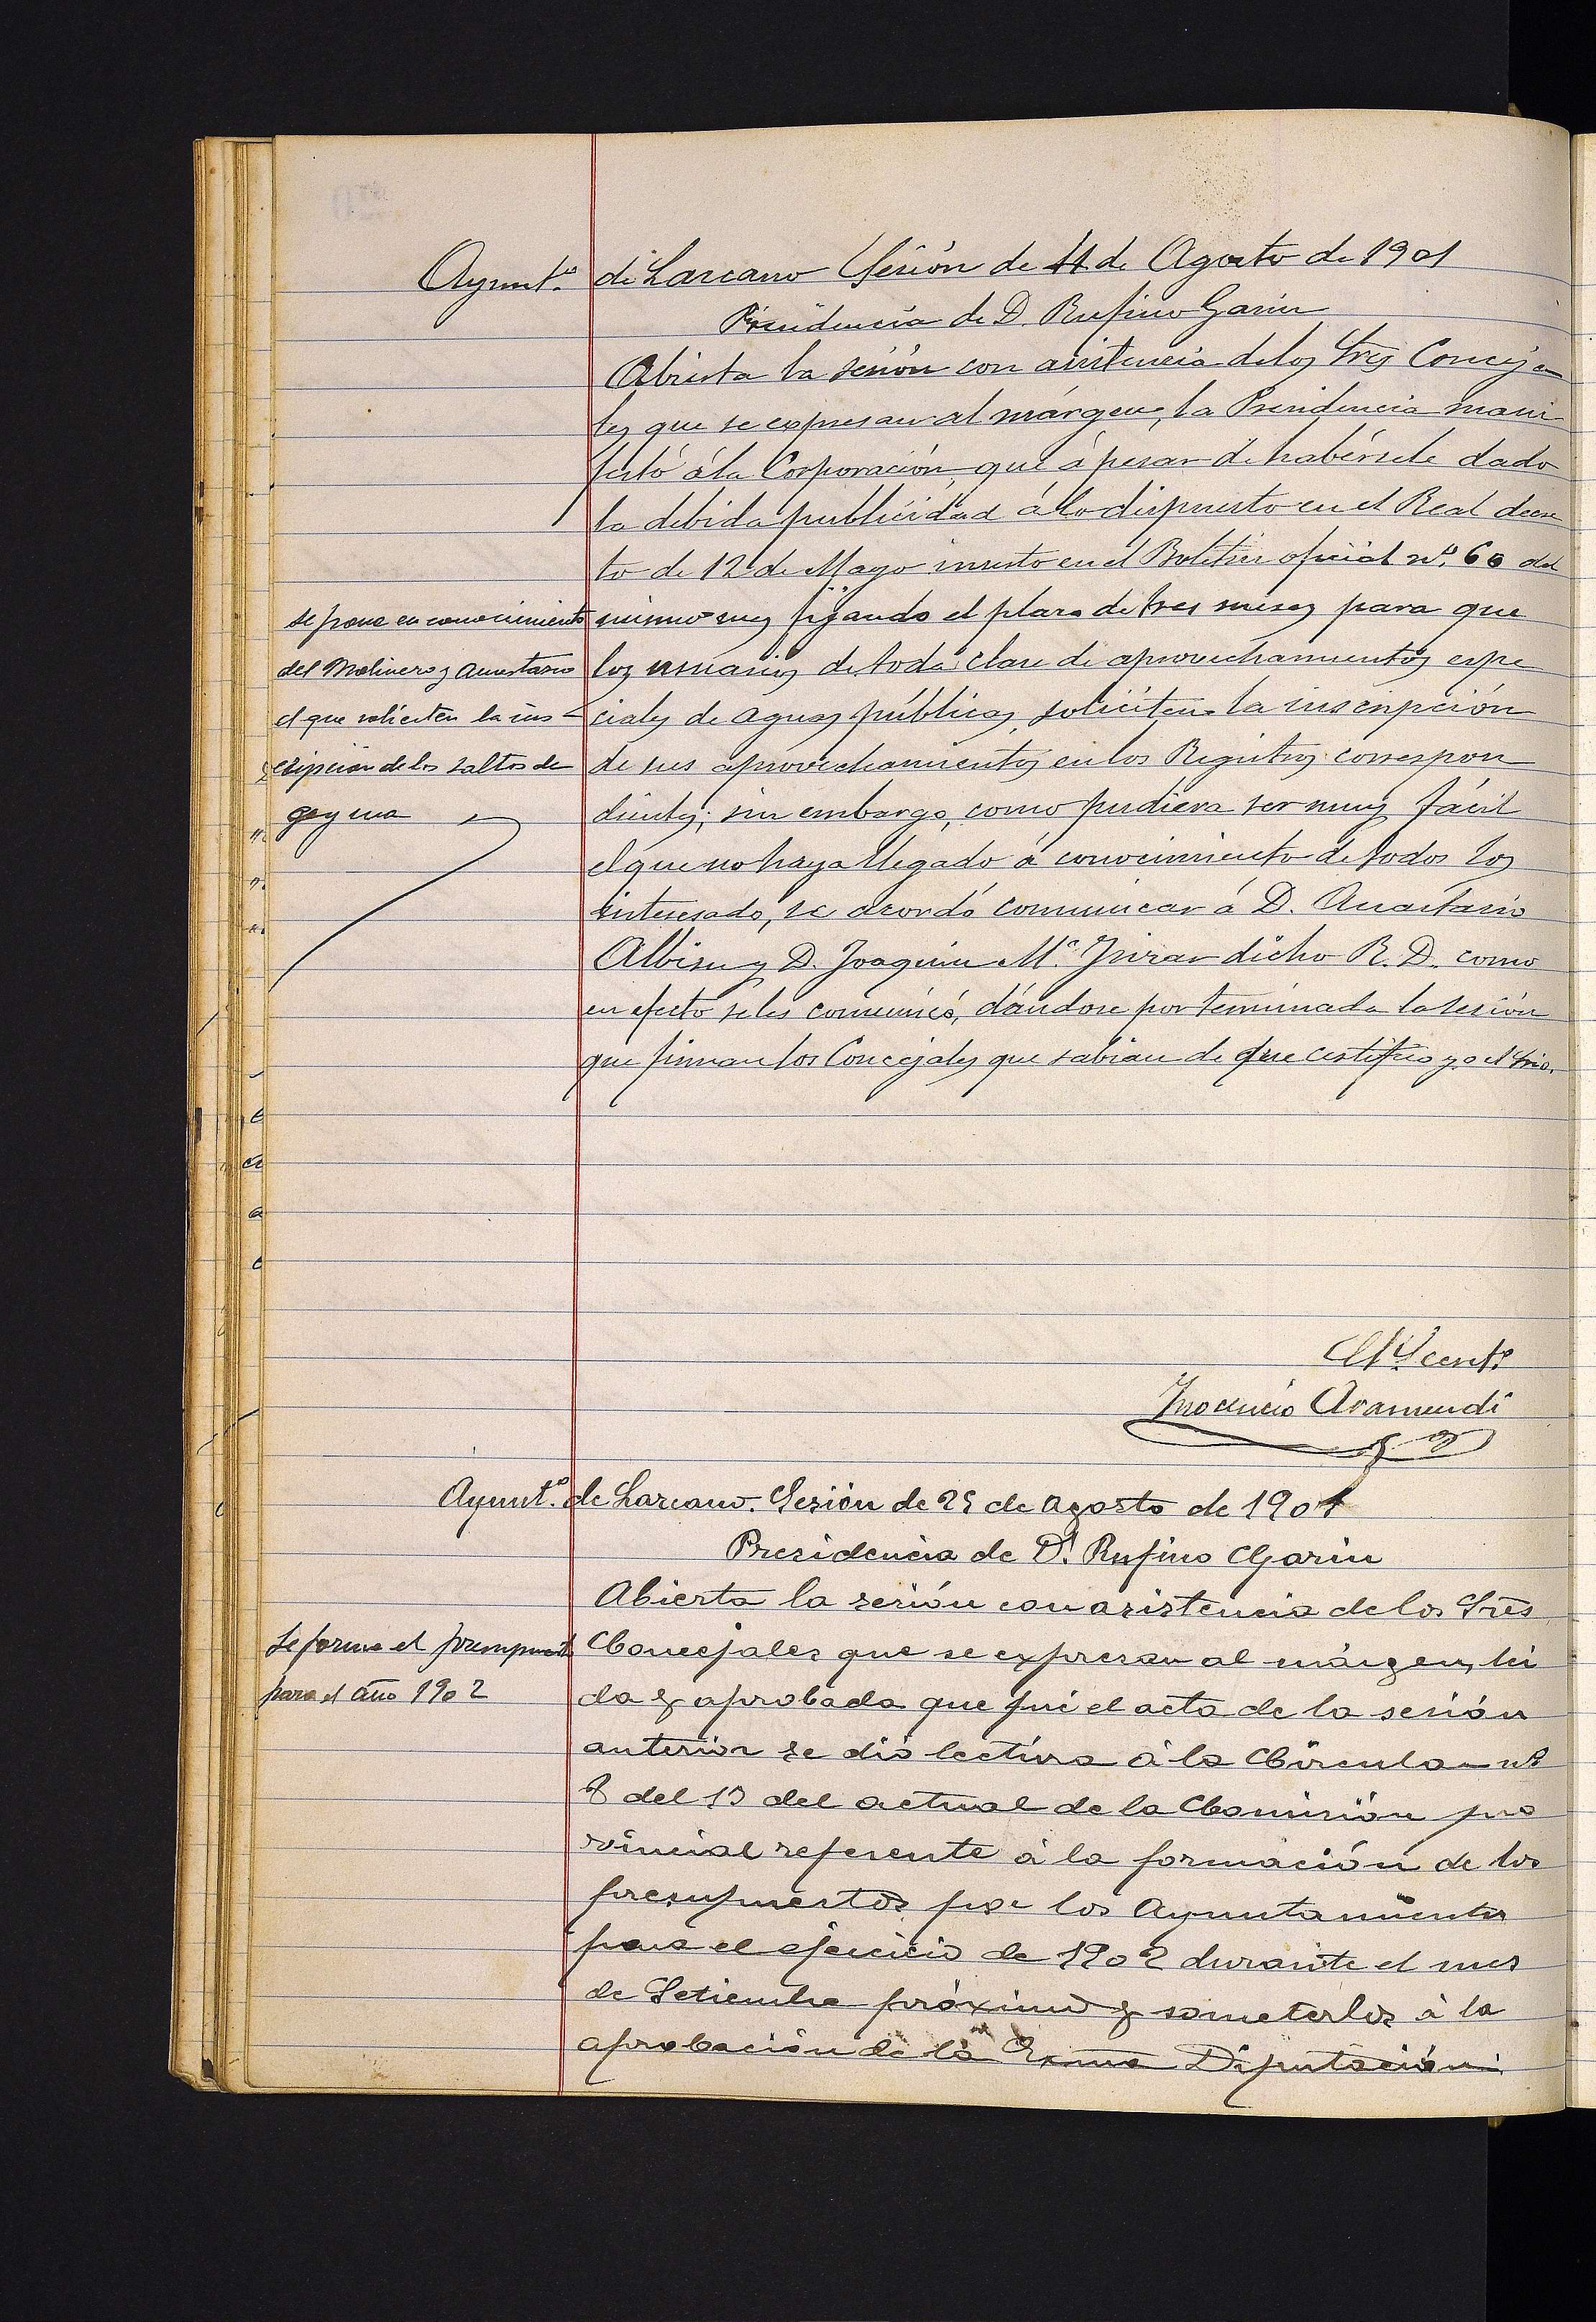 Ayunt.º de Lazcano Sesión de 11 de Agosto de 1901
Presidencia de D. Rufino Garin
Abierta la sesión con asistencia de los Sres Conceja
les que se expresan al márgen, la Presidencia mani
festó á la Corporación, que á pesar de habérsele dado
la debida publicidad á lo dispuesto en el Real decre
to de 12 de Mayo inserto en el Boletin oficial nº. 60 del
mismo mes fijando el plazo de tres meses para que
los usuarios de toda clase de aprovechamientos espe
ciales de aguas públicas, soliciten la inscripción
de sus aprovechamientos en los Registros correspon
dientes; sin embargo, como pudiera ser muy fácil
el que no haya llegado á conocimiento de todos los
interesado, se acordó comunicar á D. Anastasio
Albisu y D. Joaquin Mª. dicho R. D. como
en efecto se les comunicó, dándose por terminada la sesión
que firman los Concejales que sabian de que certifico yo el Srio.
se pone en conocimiento
del Molinero y Anastasio
el que soliciten la ins-
cripcion de los saltos de
Inocencio Aramendi
Ayunt.º de Lazcano. Sesión de 25 de Agosto de 1901
Presidencia de D. Rufino Garin
Abierta la sesión con asistencia de los Sres
Concejales que se expresan al márgen, lei
da y aprobada que fué el acta de la sesión
anterior se dió lectura á la Circular nº
8 del 13 del actual de la Comisión pro
vincial referente á la formación de los
presupuestos por los Ayuntamientos
para el ejercicio de 1902 durante el mes
de Setiembre próximo y someterlos á la
aprobación de la Exma Diputación
Se forma el presupuesto
para el año 1902